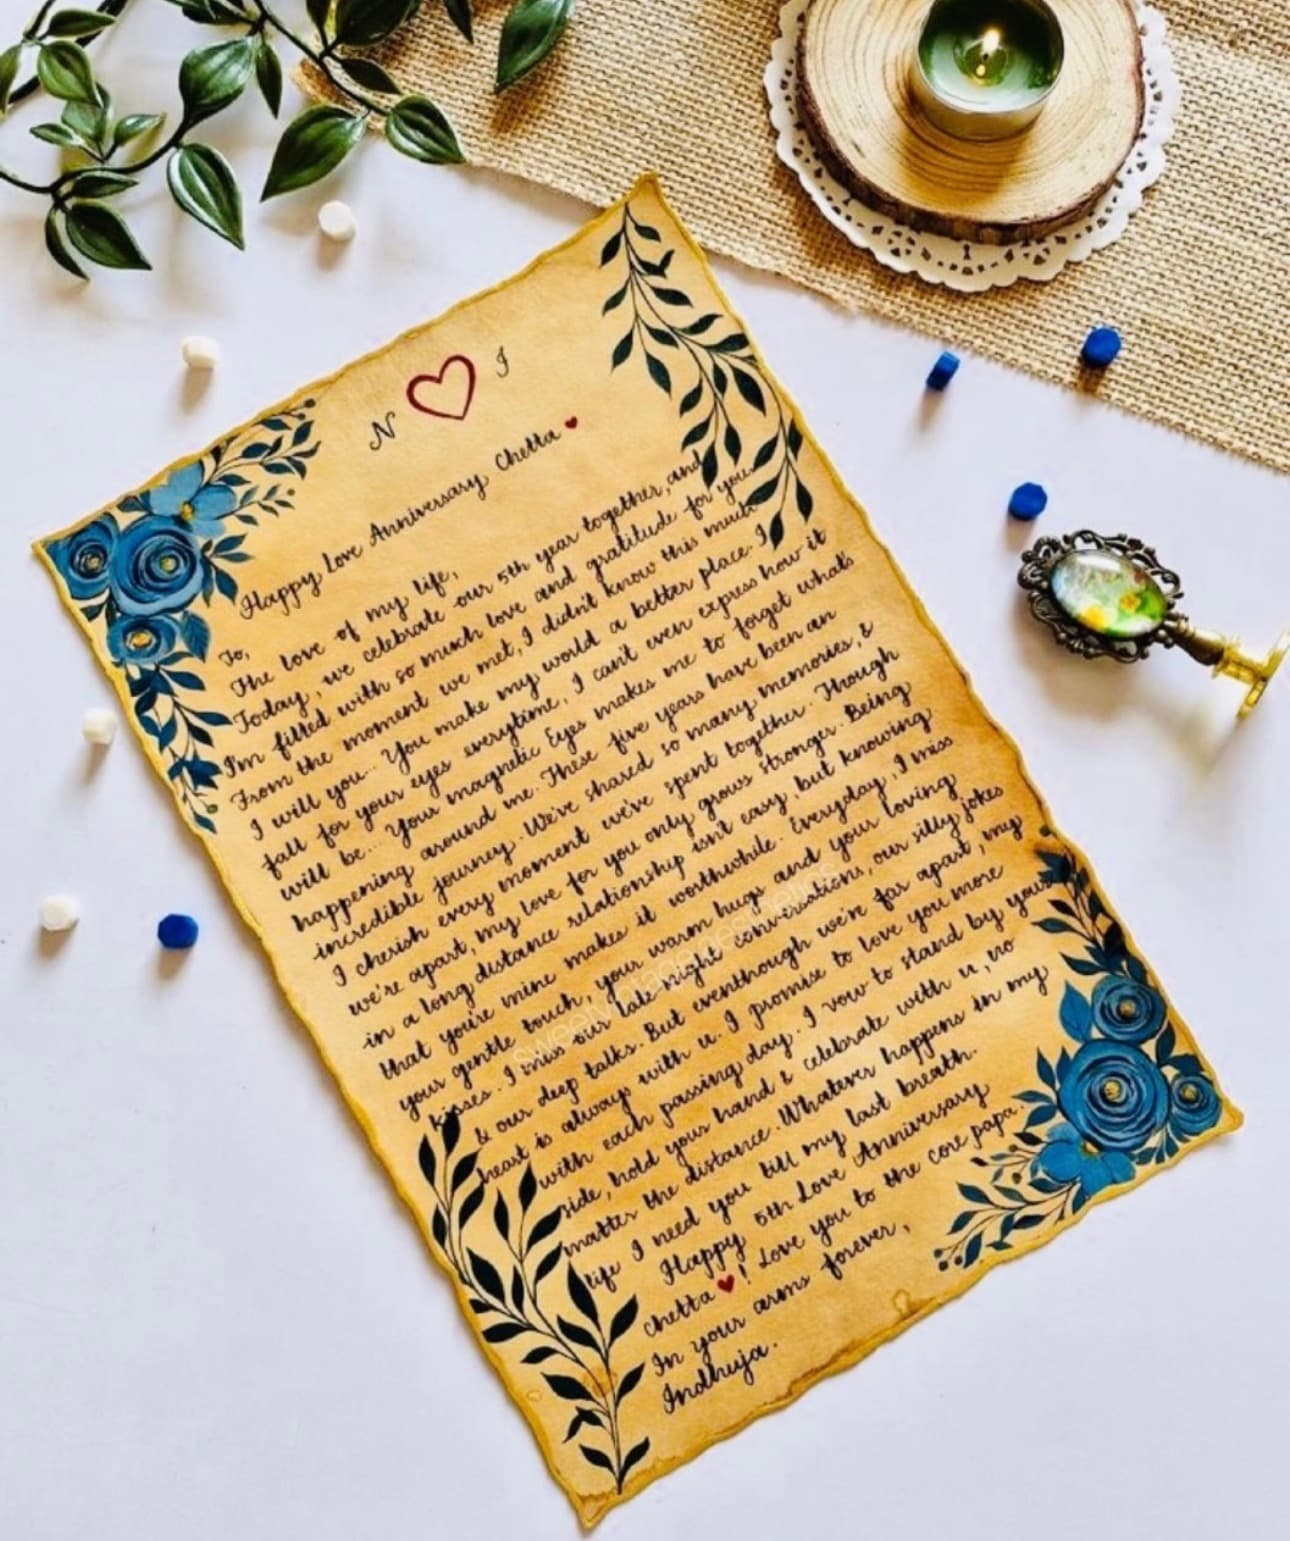 N I
Happy Love Anniversary Chetta
To,
The love of my life,
Today, we celebrate our 5th year together, and
I'm filled with so much love and gratitude for you.
From the moment we met, I didn't know this much
I will you... You make my world a better place. I
fall for your eyes everytime, I can't even express how it
will be... Your magnetic Eyes makes me to forget what's
happening around me. These five years have been an
incredible journey. We've shared so many memories, &
I cherish every moment we've spent together. Though
we're apart, my love for you only grows stronger. Being
in a long distance relationship isn't easy, but knowing
that you're mine makes it worthwhile. Everyday, I miss
your gentle touch, your warm hugs and your loving
kisses. I miss our late night conversations, our silly jokes
& our deep talks. But eventhough we're far apart, my
heart is always with u. I promise to love you more
with each passing day. I vow to stand by your
side, hold your hand & celebrate with u, no
matter the distance. Whatever happens in my
life I need you till my last breath.
Happy 5th Love Anniversary
Chetta ! Love you to the core papa.
In your arms forever,
Indhuja.